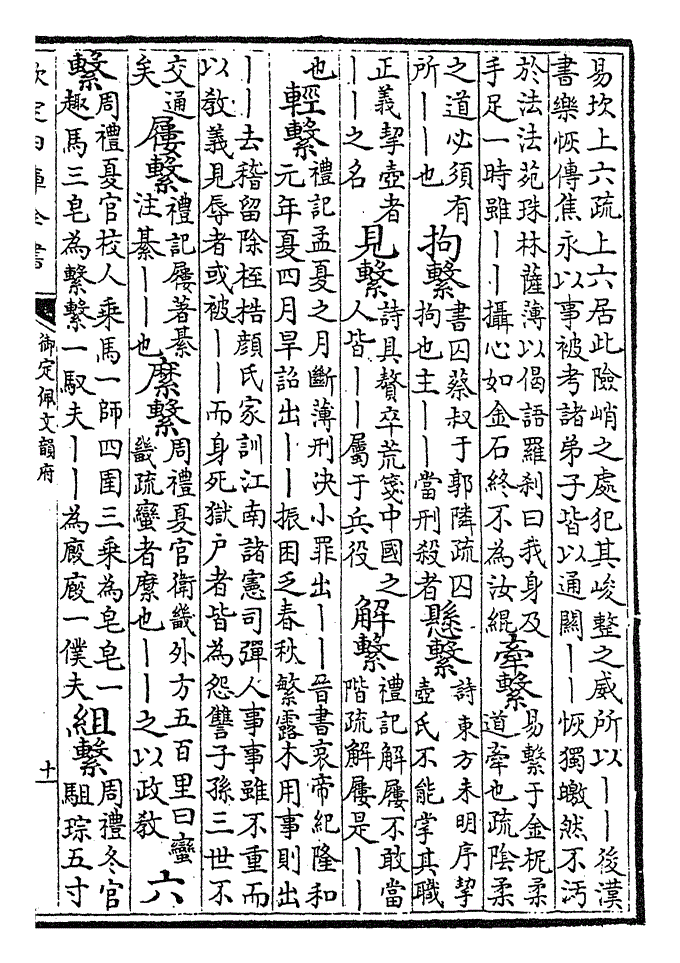 易坎上六疏上六居此險峭之處犯其峻整之威所以——後漢
書樂恢傳焦永以事被考諸弟子皆以通關——恢獨皦然不汚
於法法苑珠林薩薄以偈語羅剎曰我身及
手足一時雖——攝心如金石終不為汝緄
牽繫
易繫于金柅柔
道牽也疏陰柔
之道必須有
所——也
拘繫
書囚蔡叔于郭隣疏囚
拘也主——當刑殺者
懸繫
詩東方未明序挈
壺氏不能掌其職
正義挈壺者
——之名
見繫
詩具贅卒荒箋中國之
人皆——屬于兵役
解繫
禮記解屨不敢當
階疏解屨是——
也
輕繫
禮記孟夏之月斷薄刑决小罪出——晉書哀帝紀隆和
元年夏四月旱詔出——振困乏春秋繁露木用事則出
——去稽留除桎梏顔氏家訓江南諸憲司彈人事事雖不重而
以教義見辱者或被——而身死獄户者皆為怨讐子孫三世不
交通
矣
屨繫
禮記屨著綦
注綦——也
縻繫
周禮夏官衛畿外方五百里曰蠻
畿疏蠻者縻也——之以政教
六
繫
周禮夏官校人乘馬一師四圉三乘為皂皂一
趣馬三皂為繫繫一馭夫——為廏廏一僕夫
組繫
周禮冬官
駔琮五寸
欽定四庫全書
御定佩文韻府
十一